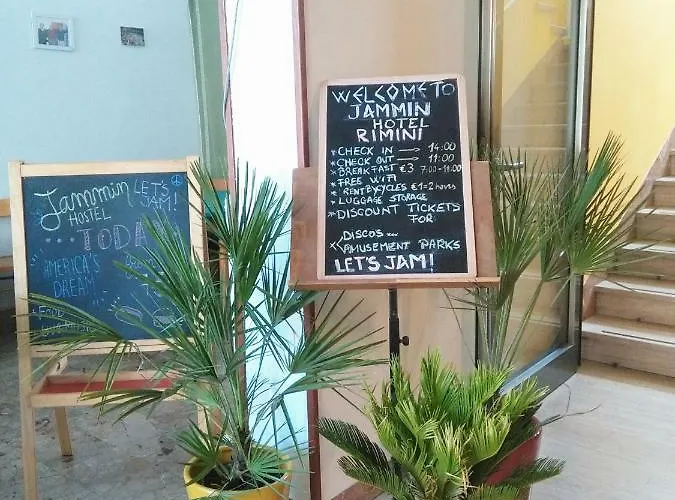 Jammin
HOSTEL
LET'S
JAM!
... TODAY
AMERICA'S
DREAM
FOOD
WELCOME TO
JAMMIN
HOTEL
RIMINI
* CHECK IN → 14:00
* CHECK OUT → 11:00
* BREAKFAST €3 7:00-11:00
* FREE WIFI
* RENT BYCYCLES €1-2 hours
* LUGGAGE STORAGE
* DISCOUNT TICKETS
FOR:
DISCOS...
AMUSEMENT PARKS
LET'S JAM!